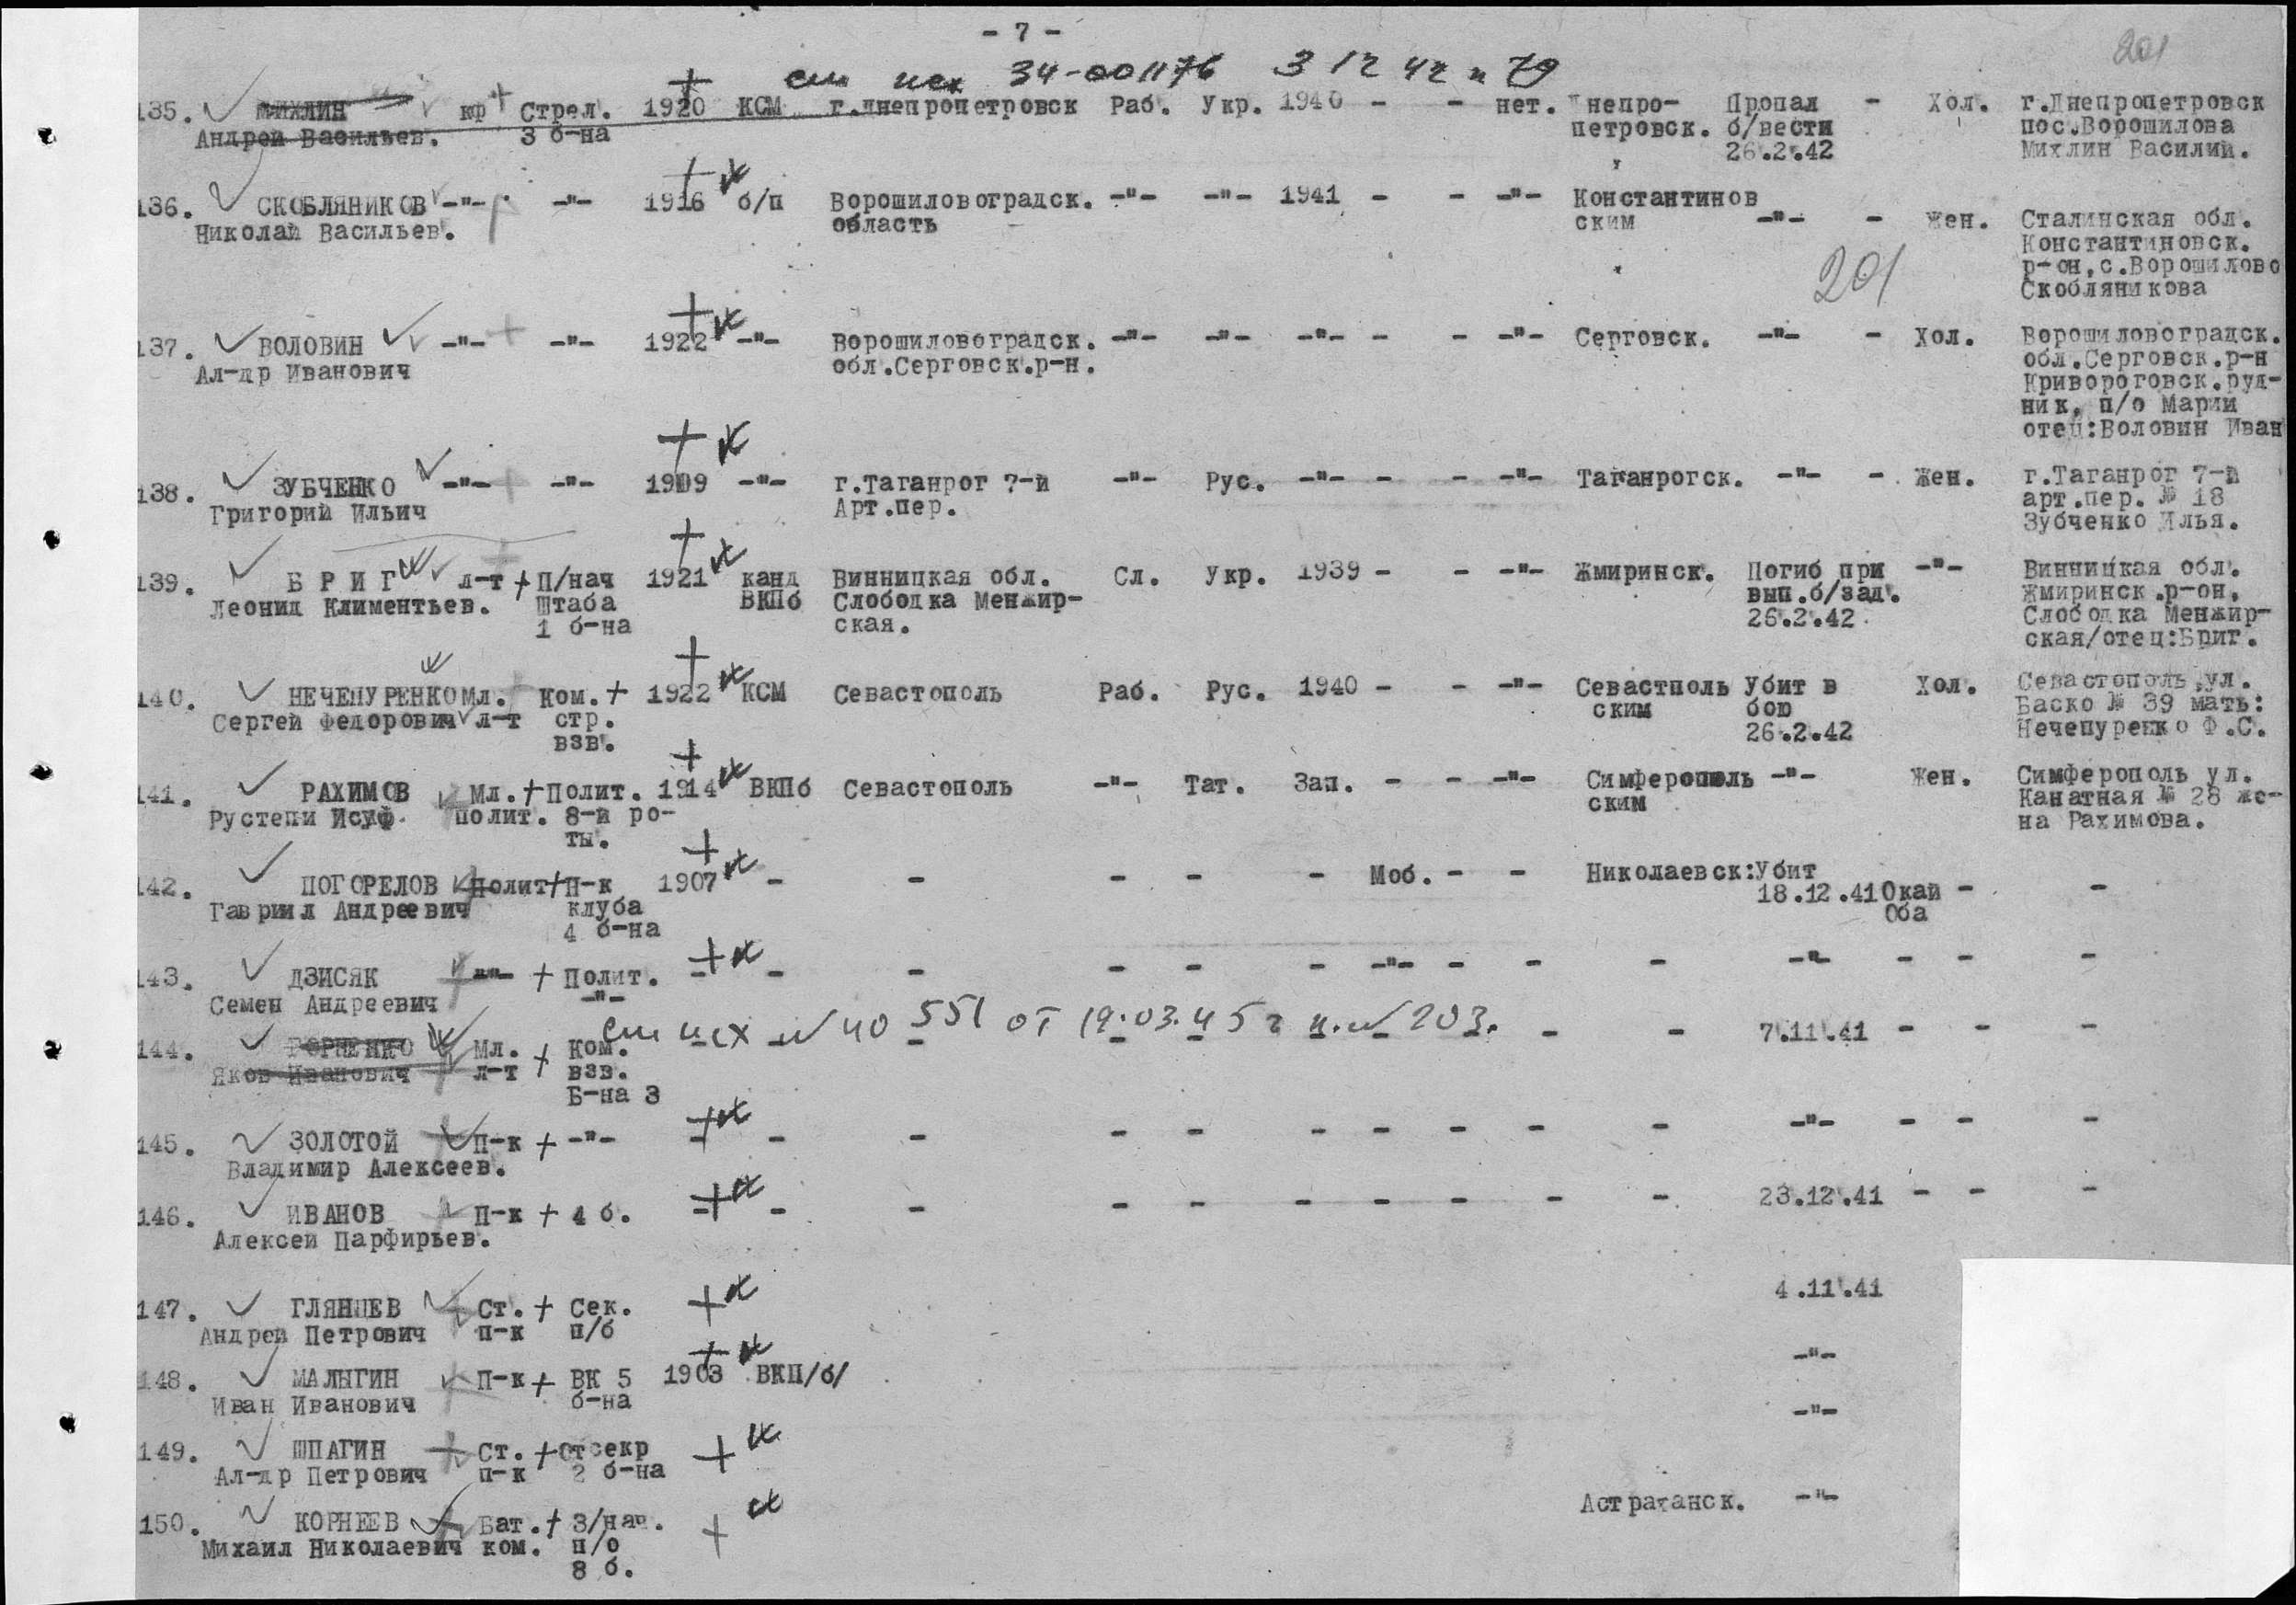 - 7 -
201
см исх 34-001176 3 12 42 п 79
135. МИХЛИН кф Стрел. 1920 КСМ г.Днепропетровск Раб. Укр. 1940 - - нет. Днепро- Пропал - Хол. г.Днепропетровск
Андрей Васильев. 3 б-на петровск. б/вести пос.Ворошилова
26.2.42 Михлин Василий.
136. СКОБЛЯНИКОВ -"- -"- 1916 б/п Ворошиловоградск. -"- -"- 1941 - - -"- Константинов
Николай Васильев. область ским -"- - Жен. Сталинская обл.
Константиновск.
р-он,с.Ворошилово
Скобляникова
201
137. ВОЛОВИН -"- -"- 1922 -"- Ворошиловоградск. -"- -"- -"- - - -"- Серговск. -"- - Хол. Ворошиловоградск.
Ал-др Иванович обл.Серговск.р-н. обл.Серговск.р-н
Кривороговск.руд-
ник, п/о Марии
отец:Воловин Иван
138. ЗУБЧЕНКО -"- -"- 1909 -"- г.Таганрог 7-й -"- Рус. -"- - - -"- Таганрогск. -"- - Жен. г.Таганрог 7-й
Григорий Ильич Арт.пер. арт.пер. № 18
Зубченко Илья.
139. Б Р И Г л-т П/нач 1921 канд Винницкая обл. Сл. Укр. 1939 - - -"- Жмиринск. Погиб при -"- Винницкая обл.
Леонид Климентьев. Штаба ВКПб Слободка Менжир- вып.б/зад. Жмиринск.р-он,
1 б-на ская. 26.2.42. Слободка Менжир-
ская/отец:Бриг.
140. НЕЧЕПУРЕНКО Мл. Ком. 1922 КСМ Севастополь Раб. Рус. 1940 - - -"- Севастполь Убит в Хол. Севастополь,ул.
Сергей Федорович л-т стр. ским бою Баско № 39 мать:
взв. 26.2.42 Нечепуренко Ф.С.
141. РАХИМОВ Мл. Полит. 1914 ВКПб Севастополь -"- Тат. Зап. - - -"- Симферополь -"- Жен. Симферополь ул.
Рустепи Исуф. полит. 8-й ро- ским Канатная № 28 же-
ты. на Рахимова.
142. ПОГОРЕЛОВ Полит П-к 1907 - - - - - Моб. - - Николаевск:Убит
Гавриил Андреевич клуба 18.12.41 Окай - -
4 б-на Оба
143. ДЗИСЯК -"- Полит. - - - - - - -"- - - - -"- - - -
Семен Андреевич -"-
см исх № 40 551 от 19.03.45 г п.№ 203.
144. Мл. Ком. - - - - - - - - - - 7.11.41 - - -
Яков Иванович л-т взв.
Б-на 3
145. ЗОЛОТОЙ П-к -"- - - - - - - - - - - -"- - - -
Владимир Алексеев.
146. ИВАНОВ П-к 4 б. - - - - - - - - - - 23.12.41 - - -
Алексей Парфирьев.
4.11.41
147. ГЛЯНЦЕВ Ст. Сек.
Андрей Петрович п-к п/б
-"-
148. МАЛЫГИН П-к ВК 5 1903 ВКП/б/
Иван Иванович б-на
-"-
149. ШПАГИН Ст. Отсекр
Ал-др Петрович п-к 2 б-на
Астраханск. -"-
150. КОРНЕЕВ Бат. З/нач.
Михаил Николаевич ком. п/о
8 б.